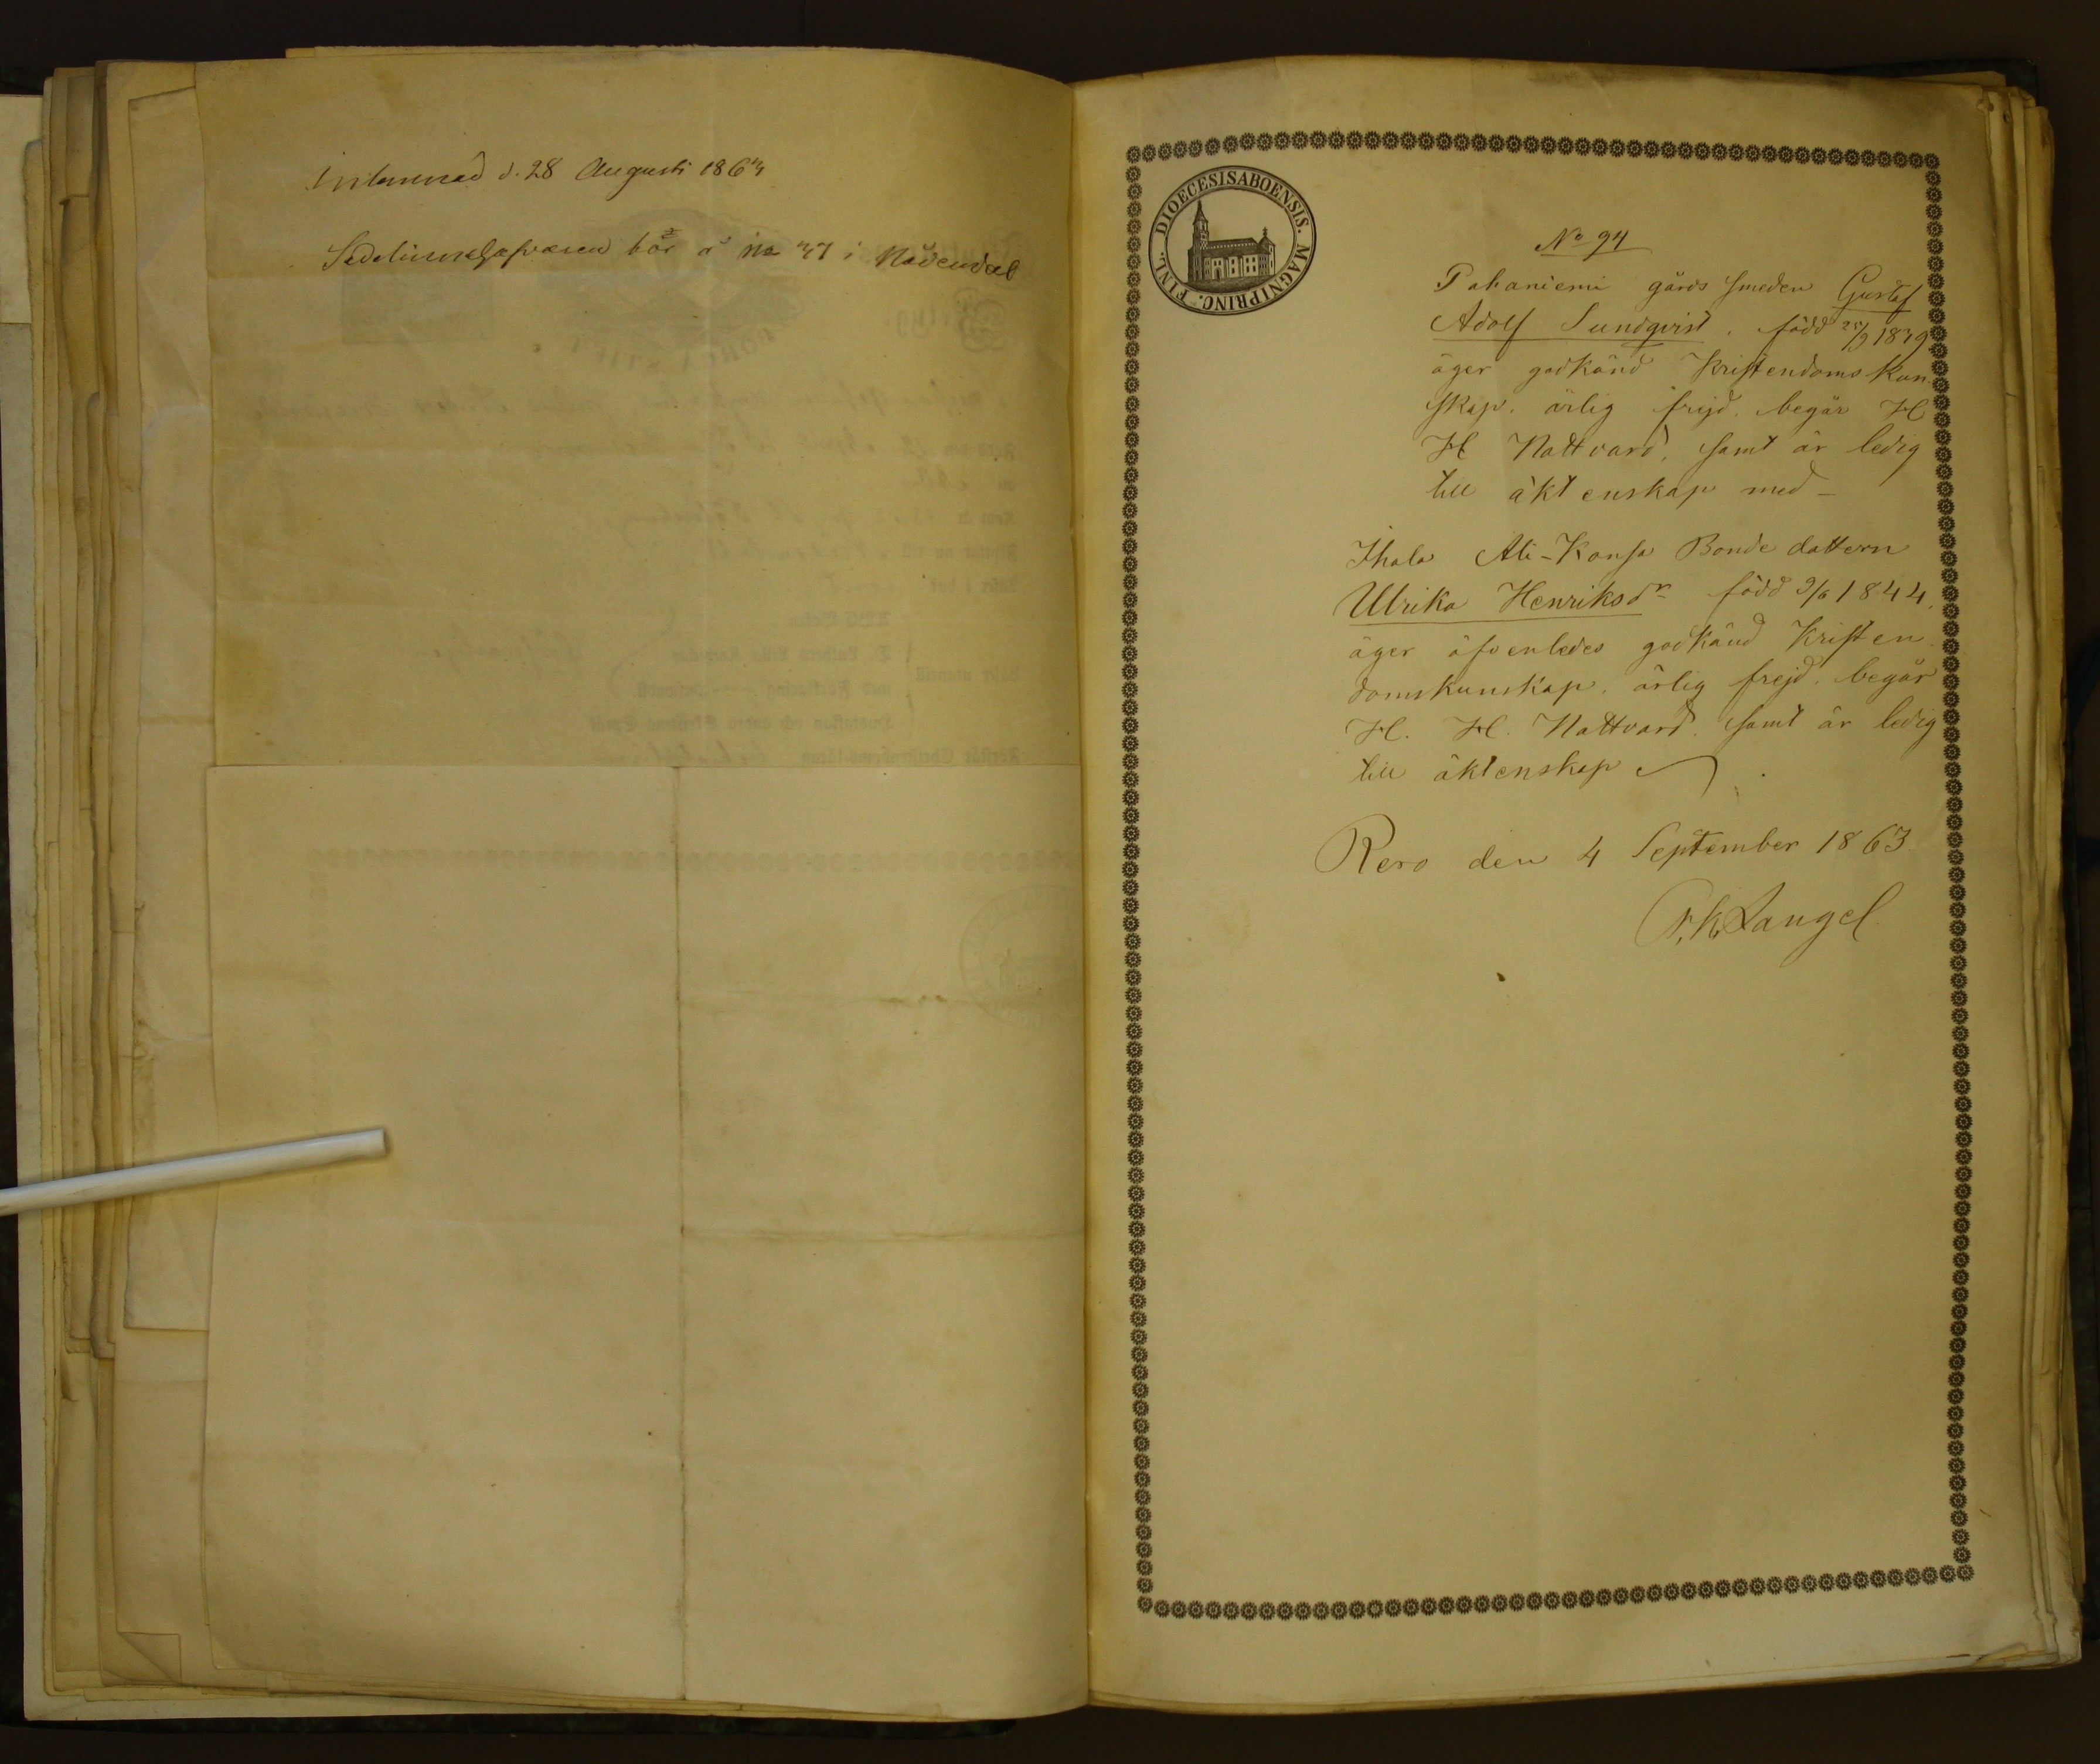 d. 28 Augusti 1863
bor å No 37 i Nådendal
DIOECESIS ABOENSIS. MAGNI PRINC. FINL.
No 94
Pahaniemi gårds smeden Gustaf
Adolf Sundqvist, född 25/9 1839
äger godkänd Kristendoms kun
skap, ärlig frejd, begår H
H Nattvard, samt är ledig
till äktenskap med –
Ihala Ali-Konsa Bonde dottern
Ulrika Henriksdr född 9/6 1844,
äger äfvenledes godkänd Kristen
domskunskap, ärlig frejd, begår
H. H. Nattvard, samt är ledig
till äktenskap
Rero den 4 September 1863
Langel